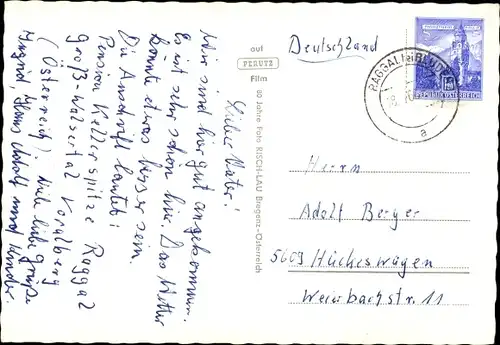 Lieber Vater!
Wir sind hier gut angekommen.
Es ist sehr schön hier. Das Wetter
könnte etwas besser sein.
Die Anschrift lautet:
Pension Kellerspitze Raggal
Groß-Walsertal Vorarlberg
(Österreich) Viele liebe Grüße
Ingrid, Hans Adolf und Kinder.
auf
PERUTZ
Film
60 Jahre Foto RISCH-LAU Bregenz-Österreich
Deutschland
REPUBLIK ÖSTERREICH
RAGGAL
a
Herrn
Adolf Berger
5609 Hückeswagen
Weierbachstr. 11